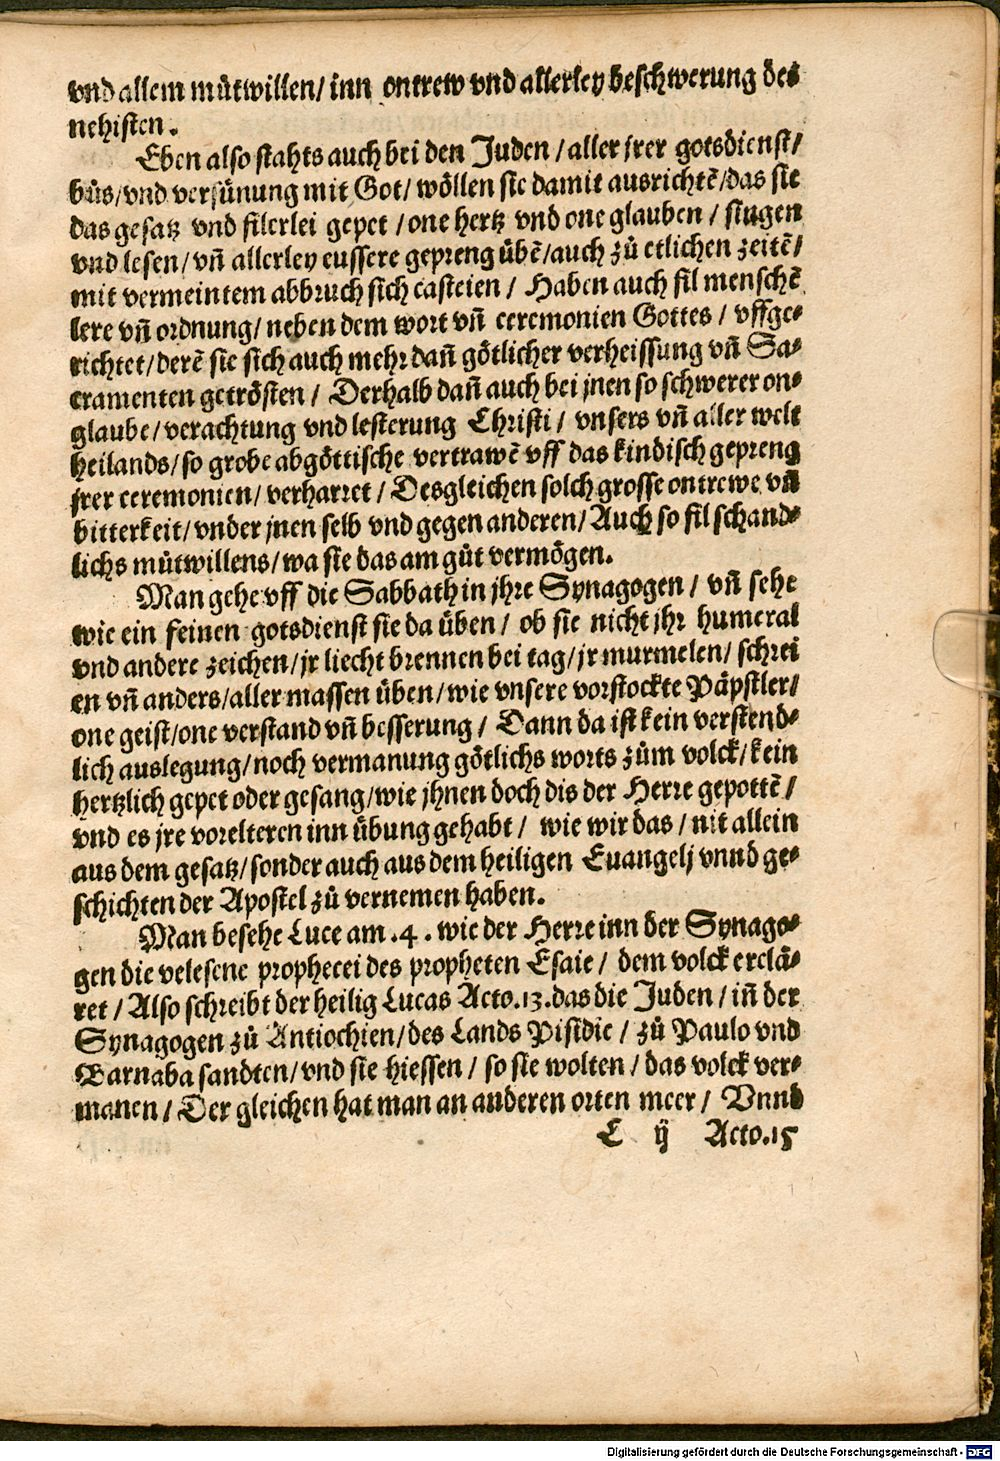 vnd allem můtwillen/ inn ontrew vnd allerley beschwerung des
nehisten.
Eben also stahts auch bei den Juden / aller jrer gotsdienst/
bůs/vnd versünung mit Got/ wöllen sie damit ausrichtē/das sie
das gesatz vnd filerlei gepet / one hertz vnd one glauben / singen
vnd lesen/ vñ allerley eussere gepreng übē/auch zů etlichen zeitē/
mit vermeintem abbruch sich casteien / Haben auch fil menschē
lere vñ ordnung/ neben dem wort vñ ceremonien Gottes / vffge⸗
richtet/derē sie sich auch mehr dañ götlicher verheissung vñ Sa⸗
cramenten getrösten / Derhalb dañ auch bei jnen so schwerer on⸗
glaube/verachtung vnd lesterung Christi / vnsers vñ aller welt
heilands/so grobe abgöttische vertrawē vff das kindisch gepreng
jrer ceremonien/ verharret / Desgleichen solch grosse ontrewe vñ
bitterkeit/vnder jnen selb vnd gegen anderen/ Auch so fil schand⸗
lichs můtwillens/wa sie das am gůt vermögen.
Man gehe vff die Sabbath in jhre Synagogen / vñ sehe
wie ein feinen gotsdienst sie da üben/ ob sie nicht jhr humeral
vnd andere zeichen/jr liecht brennen bei tag/jr murmelen/ schrei
en vñ anders/aller massen üben/wie vnsere vorstockte Päpstler/
one geist/one verstand vñ besserung / Dann da ist kein verstend⸗
lich auslegung/noch vermanung götlichs worts zům volck/kein
hertzlich gepet oder gesang/wie jhnen doch dis der Herre gepottē /
vnd es jre vorelteren inn übung gehabt / wie wir das / nit allein
aus dem gesatz/sonder auch aus dem heiligen Euangelj vnnd ge⸗
schichten der Apostel zů vernemen haben.
Man besehe Luce am .4. wie der Herre inn der Synago⸗
gen die velesene prophecei des propheten Esaie / dem volck erclä⸗
ret / Also schreibt der heilig Lucas Acto.13.das die Juden / iñ der
Synagogen zů Antiochien/des Lands Pisidie / zů Paulo vnd
Barnaba sandten/vnd sie hiessen / so sie wolten / das volck ver⸗
manen / Der gleichen hat man an anderen orten meer / Vnnd
C ij Acto.15
Digitalisierung gefördert durch die Deutsche Forschungsgemeinschaft - DFG